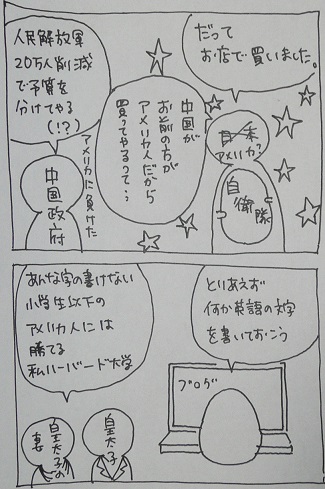 だって
お店で買いました。
日本
アメリカ?
自衛隊
中国が
お前の方が
アメリカ人だから
買ってやるって…
人民解放軍
20万人削減
で予算を
分けてやる
(!?)
アメリカに負けた
中国政府
とりあえず
何か英語の文字
を書いておこう
ブログ
あんな字の書けない
小学生以下の
アメリカ人には
勝てる
私ハーバード大学
皇太子
皇太子の
妻